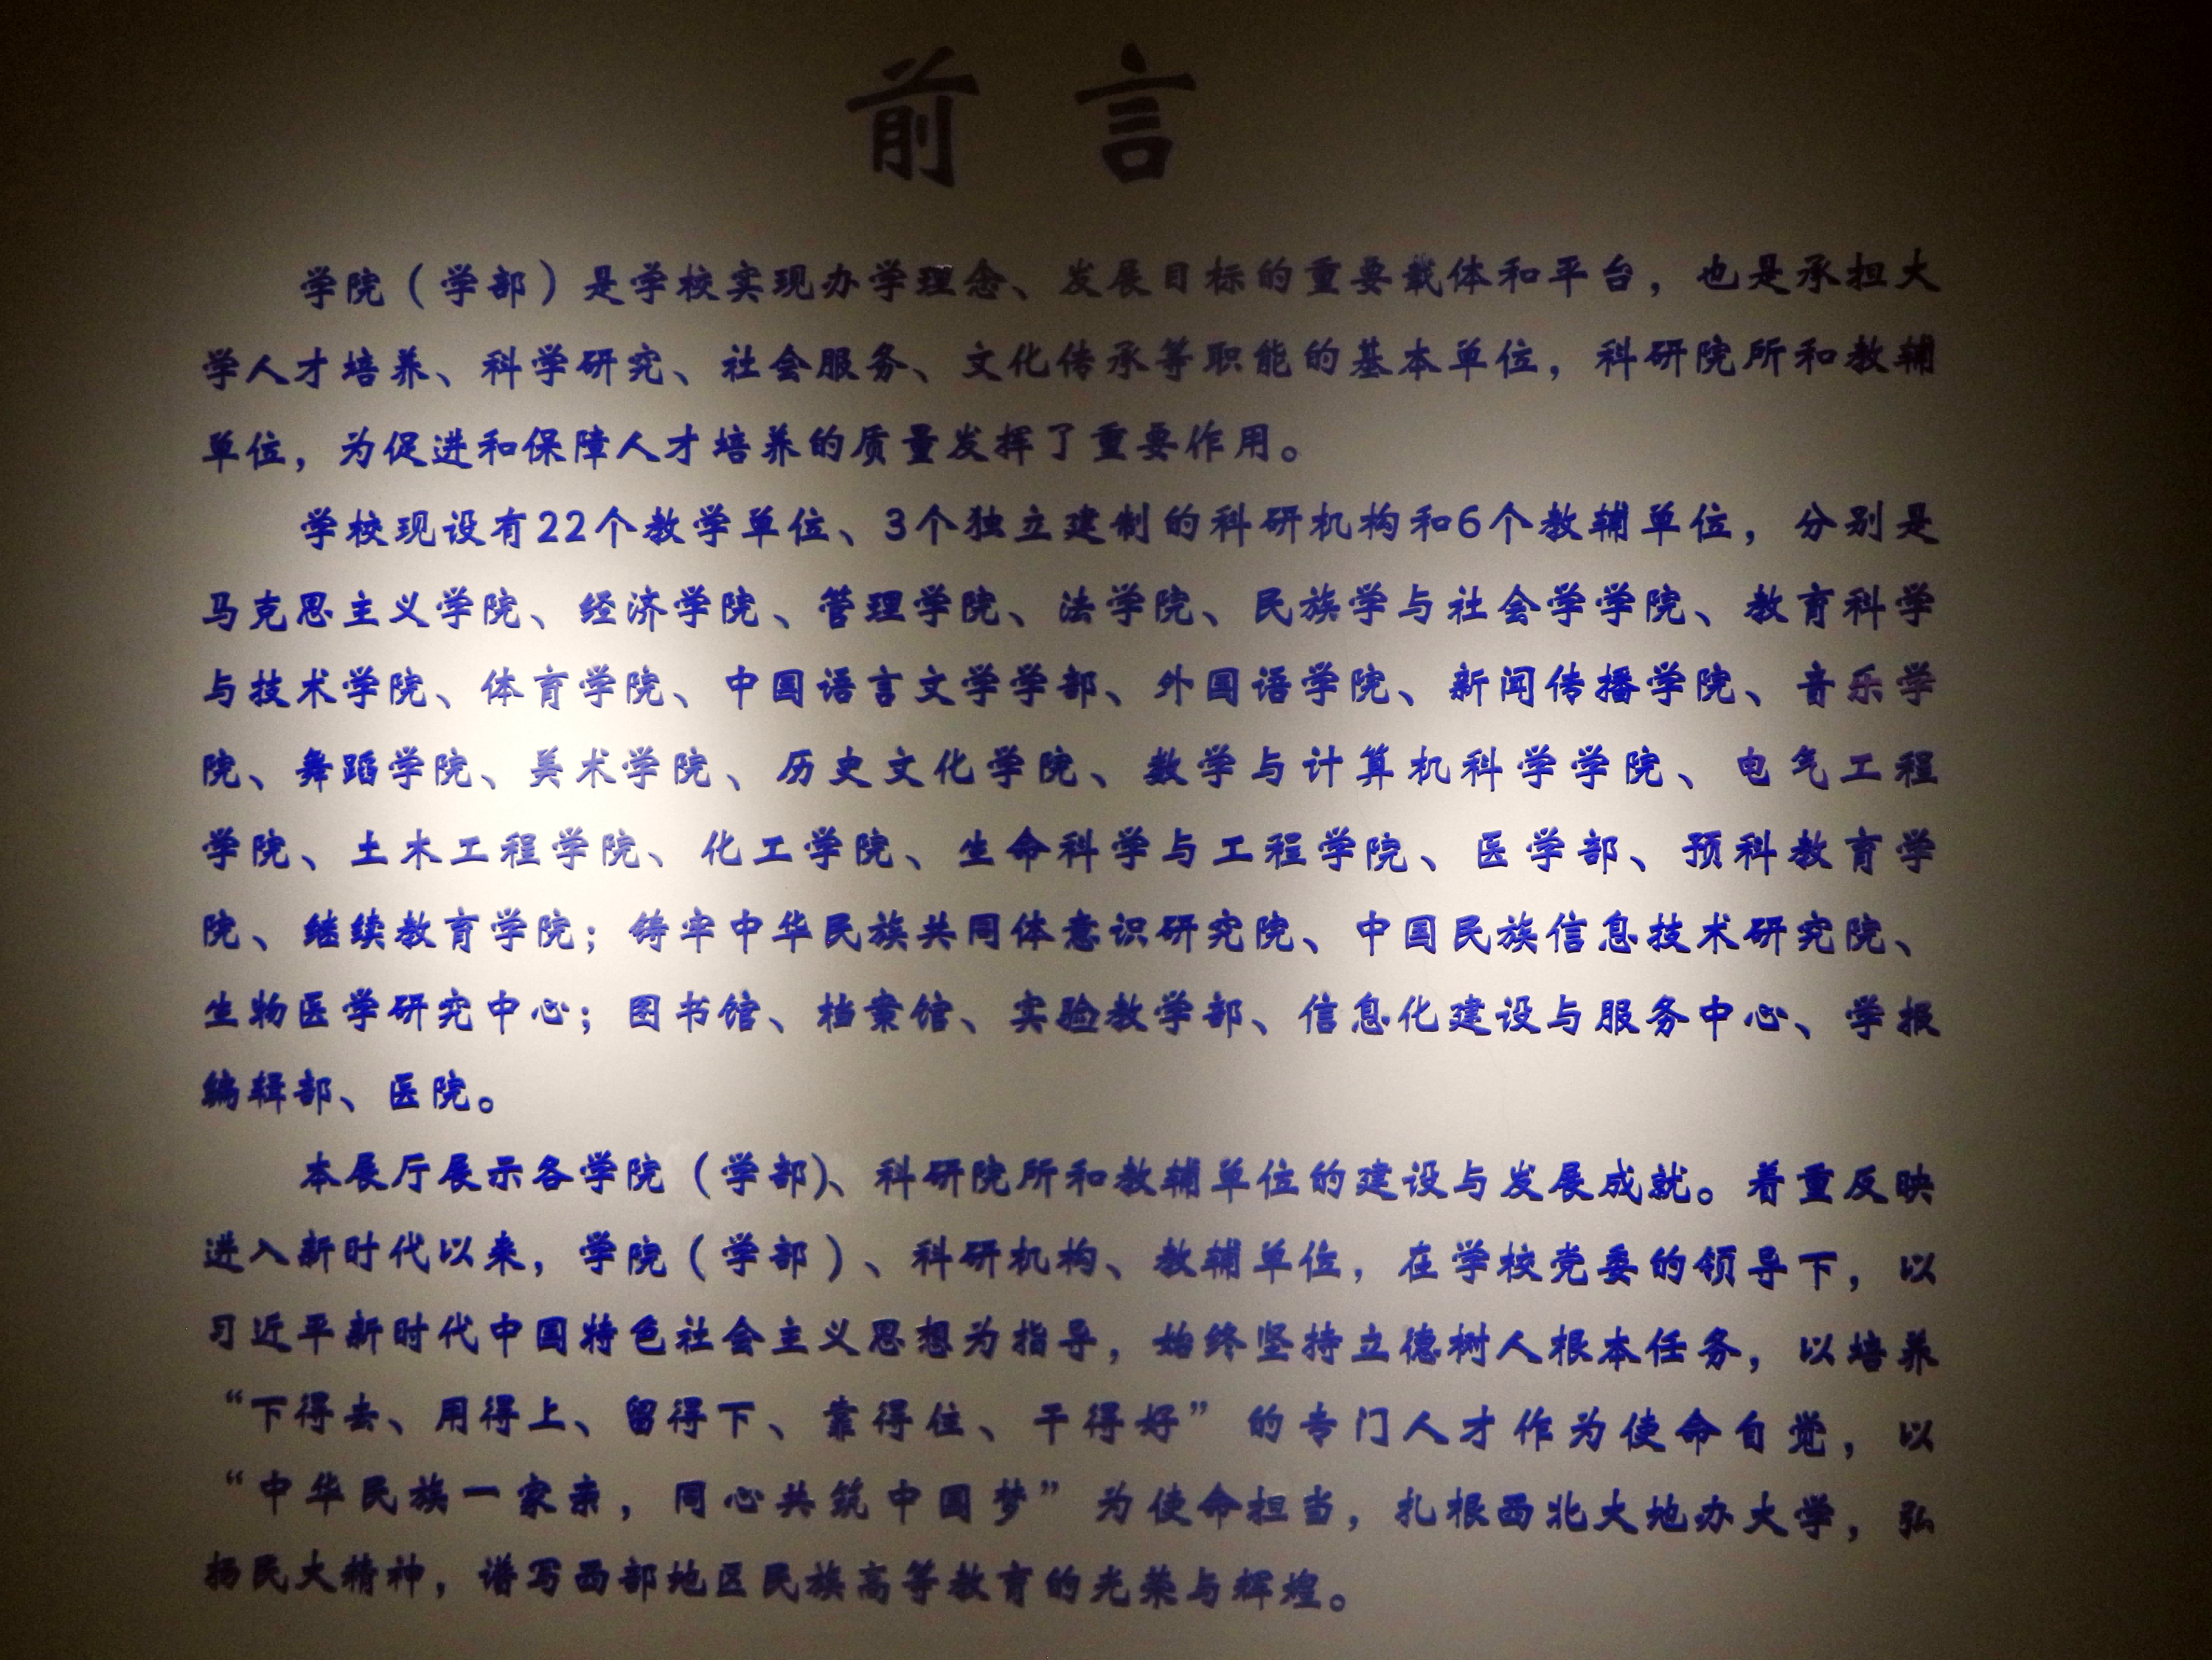 前言
学院（学部）是学校实现办学理念、发展目标的重要载体和平台，也是承担大
学人才培养、科学研究、社会服务、文化传承等职能的基本单位，科研院所和教辅
单位，为促进和保障人才培养的质量发挥了重要作用。
学校现设有22个教学单位、3个独立建制的科研机构和6个教辅单位，分别是
马克思主义学院、经济学院、管理学院、法学院、民族学与社会学学院、教育科学
与技术学院、体育学院、中国语言文学学部、外国语学院、新闻传播学院、音乐学
院、舞蹈学院、美术学院、历史文化学院、数学与计算机科学学院、电气工程
学院、土木工程学院、化工学院、生命科学与工程学院、医学部、预科教育学
院、继续教育学院；铸牢中华民族共同体意识研究院、中国民族信息技术研究院、
生物医学研究中心；图书馆、档案馆、实验教学部、信息化建设与服务中心、学报
编辑部、医院。
本展厅展示各学院（学部）、科研院所和教辅单位的建设与发展成就。着重反映
进入新时代以来，学院（学部）、科研机构、教辅单位，在学校党委的领导下，以
习近平新时代中国特色社会主义思想为指导，始终坚持立德树人根本任务，以培养
“下得去、用得上、留得下、靠得住、干得好”的专门人才作为使命自觉，以
“中华民族一家亲，同心共筑中国梦”为使命担当，扎根西北大地办大学，弘
扬民大精神，谱写西部地区民族高等教育的光荣与辉煌。